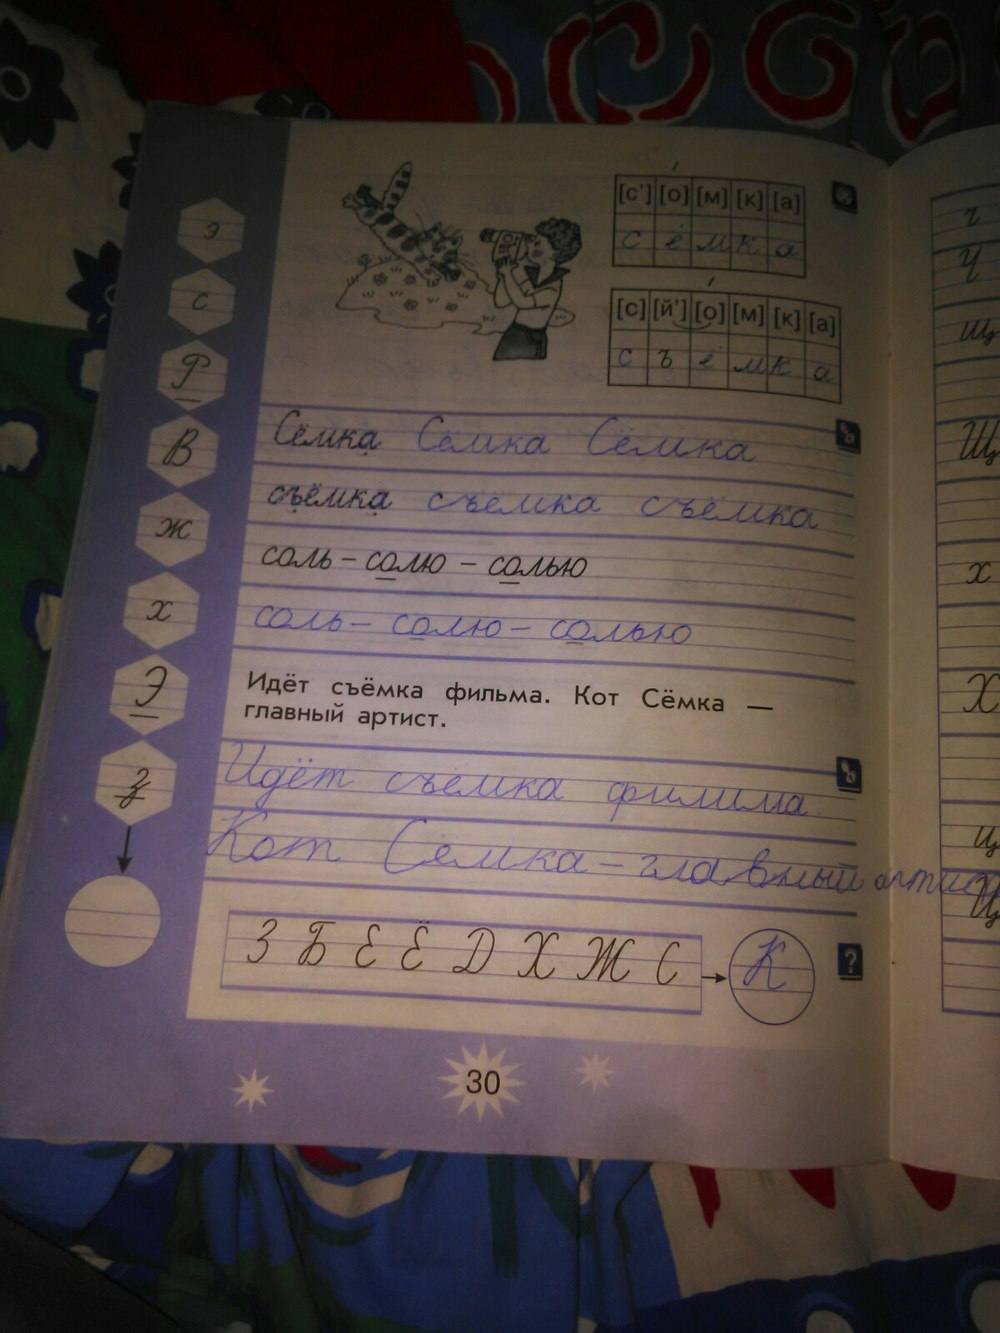 [с'] [о] [м] [к] [а]
с ё м к а
[с] [й'] [о] [м] [к] [а]
с ъ ё м к а
э
с
Р
В
ж
х
Э
з
Сёмка Сёмка Сёмка
съёмка съёмка съёмка
соль – солю – солью
соль – солю – солью
Идёт съёмка фильма. Кот Сёмка —
главный артист.
Идёт съёмка филима
Кот Сёмка – главный артист
З Б Е Ё Д Х Ж С К
?
30
ч
Ч
щ
Щ
х
Х
ц
Ц